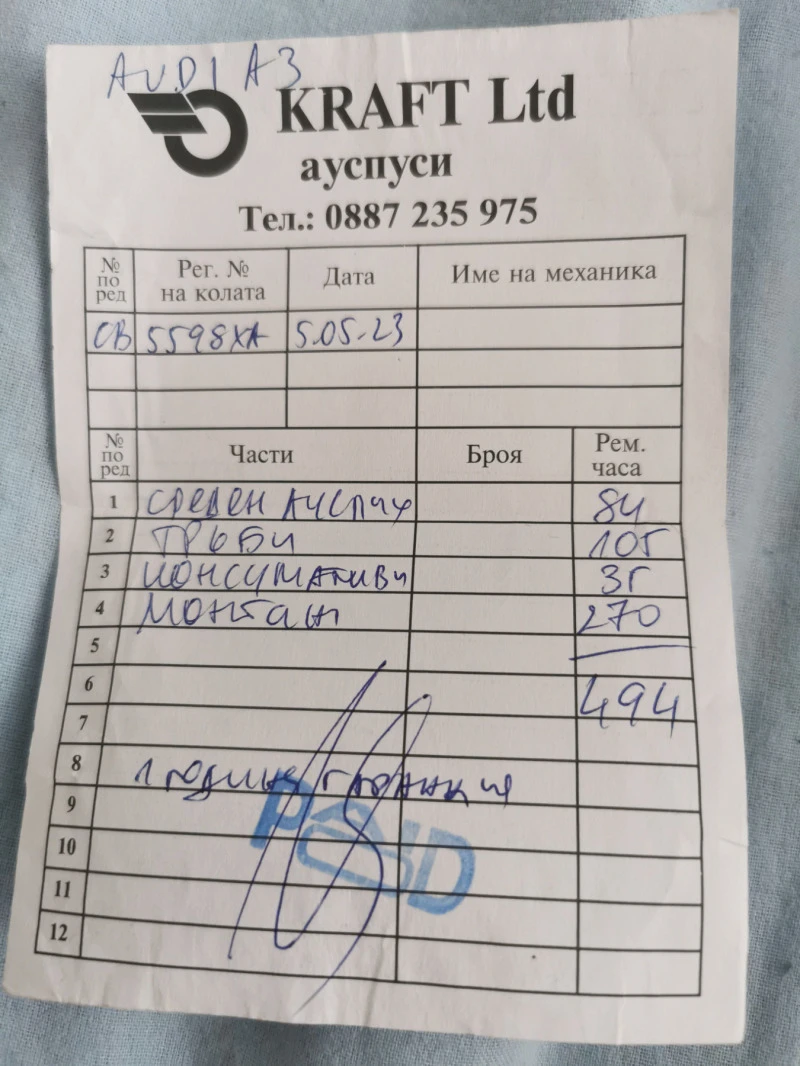 AUDI A3
KRAFT Ltd
ауспуси
Тел.: 0887 235 975
№ по ред Рег. № на колата Дата Име на механика
СВ 5598ХА 5.05.23
№ по ред Части Броя Рем. часа
1 СРЕДЕН АУСПУХ 84
2 ТРЪБИ 105
3 КОНСУМАТИВИ 35
4 МОНТАЖ 270
5
6 494
7
8 1 ГОДИНА ГАРАНЦИЯ
9
PAID
10
11
12